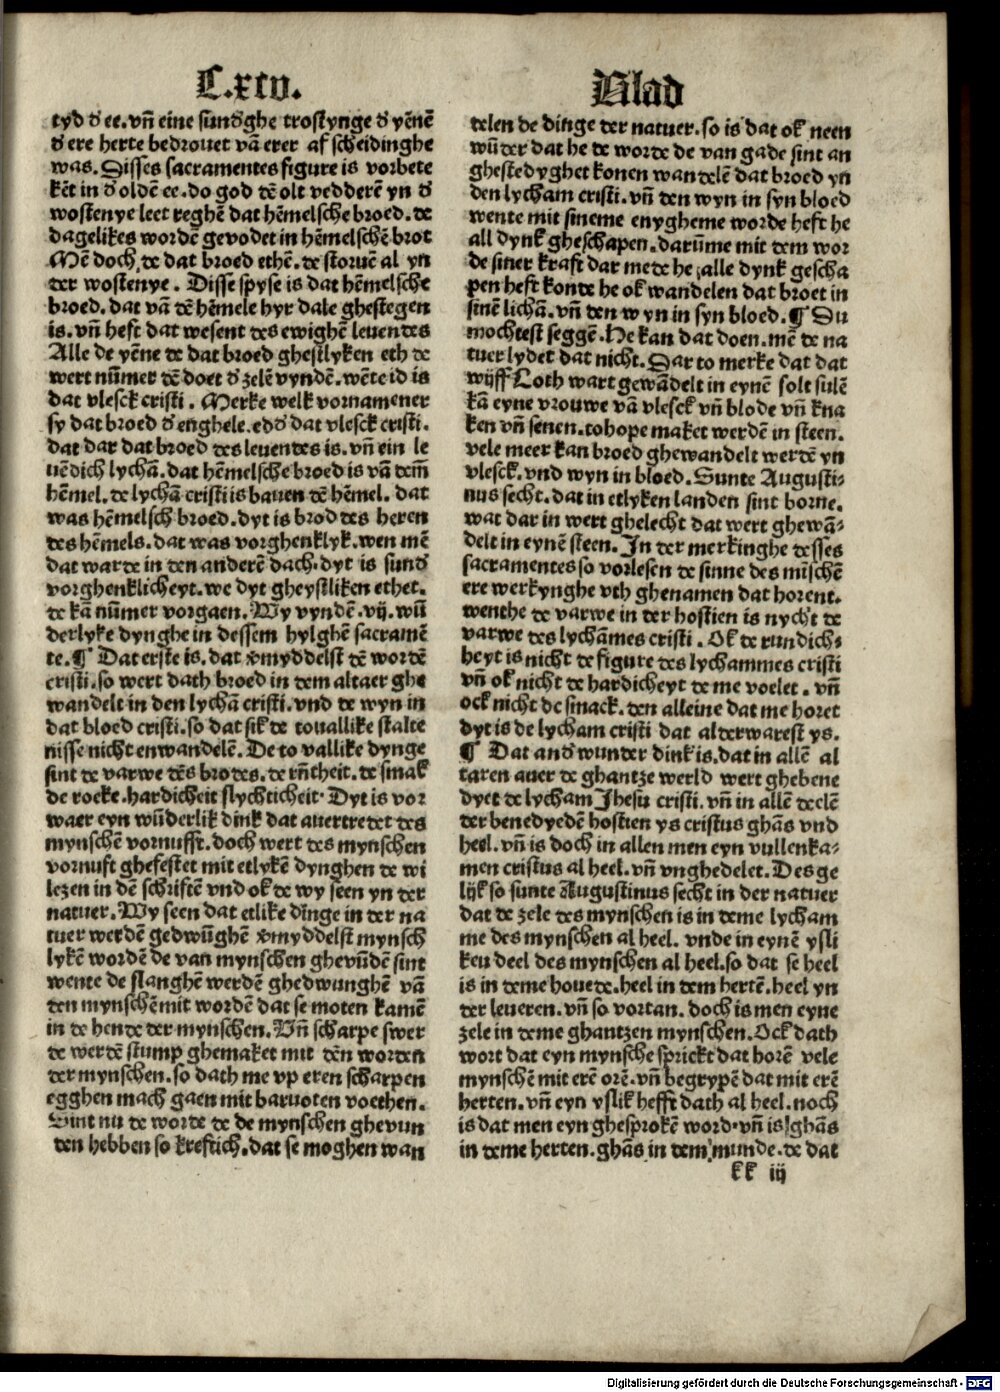 C.xcv. Blad
tyd d̕ ee. vn̄ eine sund̕ghe trostynge d̕ yēnē
d̕ ere herte bedrouet vā erer af scheidinghe
was. Disses sacramentes figure is vorbete
kēt in d̕ oldē ee. do god tē olt vedderē yn d̕
wostenye leet reghē dat hēmelsche broed. de
dagelikes wordē gevodet in hēmelschē brot
Mē doch de dat broed ethē. de storuē al yn
der wostenye. Disse spyse is dat hēmelsche
broed. dat vā dē hēmele hyr dale ghestegen
is. vn̄ heft dat wesent des ewighē leuendes
Alle de yēne de dat broed ghestlyken eth de
wert nūmer dē doet d̕ zelē vyndē. wēte id is
dat vlesck cristi. Merke welk vornamener
sy dat broed d̕ enghele. edd̕ dat vlesck cristi.
dat dar dat broed des leuendes is. vn̄ ein le
uēdich lychā. dat hēmelsche broed is vā dem̄
hēmel. de lychā cristi is bauen dē hēmel. dat
was hēmelsch broed. dyt is brod des heren
des hēmels. dat was vorghenklyk. wen mē
dat warde in den anderē dach. dyt is sund̕
vorghenklicheyt. we dyt gheystliken ethet.
de kā nūmer vorgaen. Wy vyndē. vij. wū
derlyke dynghe in dessem hylghē sacramē
te. ¶ Dat erste is. dat v̕myddelst dē wordē
cristi. so wert dath broed in dem altaer ghe
wandelt in den lychā cristi. vnd de wyn in
dat bloed cristi. so dat sik de touallike stalte
nisse nicht enwandelē. De to vallike dynge
sint de varwe dēs brodes. de rn̄theit. de smak
de roeke. hardicheit slychticheit. Dyt is vor
waer eyn wūderlik dink dat auertredet des
mynschē vornufft. doch wert des mynschen
vornuft ghefestet mit etlykē dynghen de wi
lezen in dē schriftē vnd ok de wy seen yn der
natuer. Wy seen dat etlike dinge in der na
tuer werdē gedwūghē v̕myddelst mynsch
lykē wordē de van mynschen ghevūdē sint
wente de slanghē werdē ghedwunghē vā
den mynschē mit wordē dat se moten kamē
in de hende der mynschen. Vn̄ scharpe swer
de werdē stump ghemaket mit dēn worden
der mynschen. so dath me vp eren scharpen
egghen mach gaen mit baruoten voethen.
Sint nu de worde de de mynschen ghevun
den hebben so kreftich. dat se moghen wan
delen de dinge der natuer. so is dat ok neen
wūder dat he de worde de van gade sint an
ghestedyghet konen wandelē dat broed yn
den lycham cristi. vn̄ den wyn in syn bloed
wente mit sineme enygheme worde heft he
all dynk gheschapen. darūme mit dem wor
de siner kraft dar mede he alle dynk gescha
pen heft konde he ok wandelen dat broet in
sinē lichā. vn̄ den wyn in syn bloed. ¶ Du
mochtest seggē. He kan dat doen. mē de na
tuer lydet dat nicht. Dar to merke dat dat
wijff Loth wart gewādelt in eynē solt sulē
kā eyne vrouwe vā vlesck vn̄ blode vn̄ kna
ken vn̄ senen. tohope maket werdē in steen.
vele meer kan broed ghewandelt werdē yn
vlesck. vnd wyn in bloed. Sunte Augusti-
nus secht. dat in etlyken landen sint borne.
wat dar in wert ghelecht dat wert ghewā-
delt in eynē steen. In der merkinghe desses
sacramentes so vorlesen de sinne des mīschē
ere werkynghe vth ghenamen dat horent.
wenthe de varwe in der hostien is nycht de
varwe des lychāmes cristi. Ok de rundich-
heyt is nicht de figure des lychammes cristi
vn̄ ok nicht de hardicheyt de me voelet. vn̄
ock nicht de smack. den alleine dat me horet
dyt is de lycham cristi dat alderwarest ys.
¶ Dat and̕ wunder dink is. dat in allē al
taren auer de ghantze werld wert ghebene
dyet de lycham Jhesu cristi. vn̄ in allē deelē
der benedyedē hostien ys cristus ghās vnd
heel. vn̄ is doch in allen men eyn vullenka-
men cristus al heel. vn̄ vnghedelet. Des ge
lijk so sunte Augustinus secht in der natuer
dat de zele des mynschen is in deme lycham
me des mynschen al heel. vnde in eynē ysli
keu deel des mynschen al heel. so dat se heel
is in deme houede. heel in dem hertē. heel yn
der leueren. vn̄ so vortan. doch is men eyne
zele in deme ghantzen mynschen. Ock dath
wort dat eyn mynsche sprickt dat horē vele
mynschē mit erē orē. vn̄ begrypē dat mit erē
herten. vn̄ eyn yslik hefft dath al heel. noch
is dat men eyn ghesprokē word. vn̄ is ghās
in deme herten. ghās in dem munde. de dat
kk iij
Digitalisierung gefördert durch die Deutsche Forschungsgemeinschaft - DFG